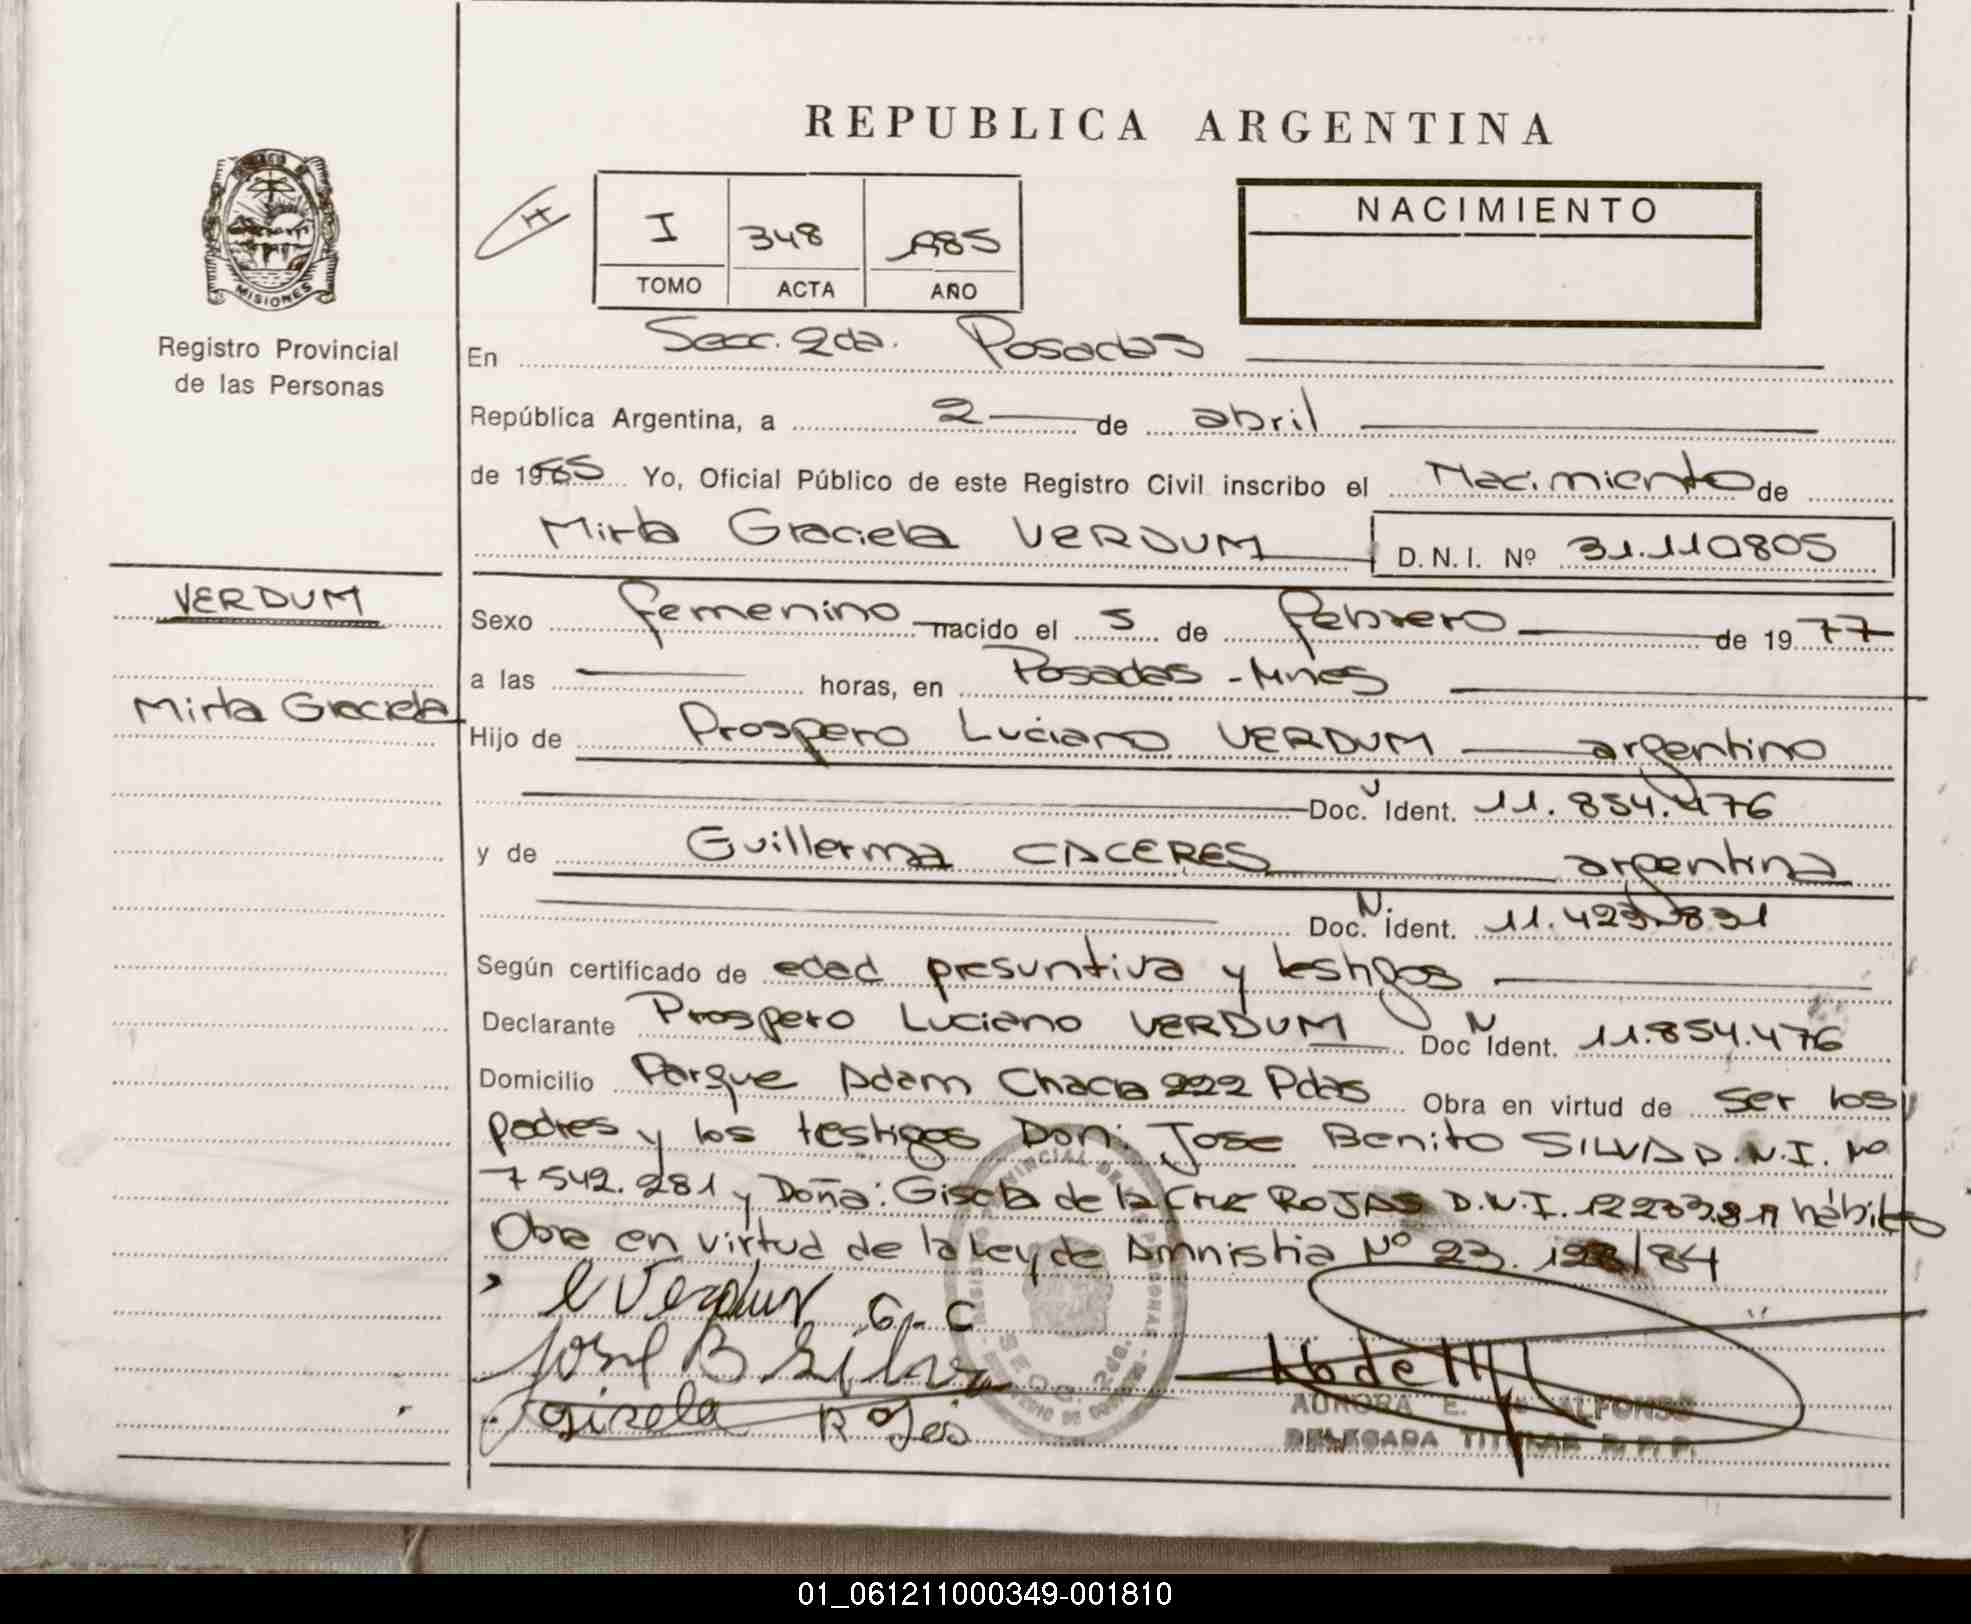 REPUBLICA ARGENTINA
MISIONES
Registro Provincial
de las Personas
I 348 1985
TOMO ACTA AÑO
NACIMIENTO
En Secc. 2da. Posadas
República Argentina, a 2 de abril
de 1985 Yo, Oficial Público de este Registro Civil inscribo el Nacimiento de
Mirta Graciela VERDUM D.N.I. Nº 31.110805
VERDUM
Mirta Graciela
Sexo femenino nacido el 5 de febrero de 1977
a las horas, en Posadas - Mnes
Hijo de Prospero Luciano VERDUM argentino
Doc. Ident. 11.854.476
y de Guillerma CACERES argentina
Doc. N. Ident. 11.423.831
Según certificado de edad presuntiva y testigos
Declarante Prospero Luciano VERDUM Doc N Ident. 11.854.476
Domicilio Parque Adam Chacra 222 Pdas Obra en virtud de ser los
padres y los testigos Don: Jose Benito SILVA D.N.I. Nº
7.542.281 y Doña: Gisela de la Cruz ROJAS D.N.I. hábiles
Obra en virtud de la Ley de Amnistia Nº 23. /84
L Verdun G. C
José B Silva
Gisela Rojas
AURORA E. ALFONSO
DELEGADA TITULAR R. P. P.
01_061211000349-001810